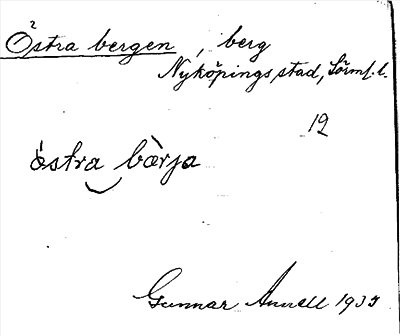 Östra bergen, berg
Nyköpings stad, Sörml. l.
12
östra bærja
Gunnar Annell 1935